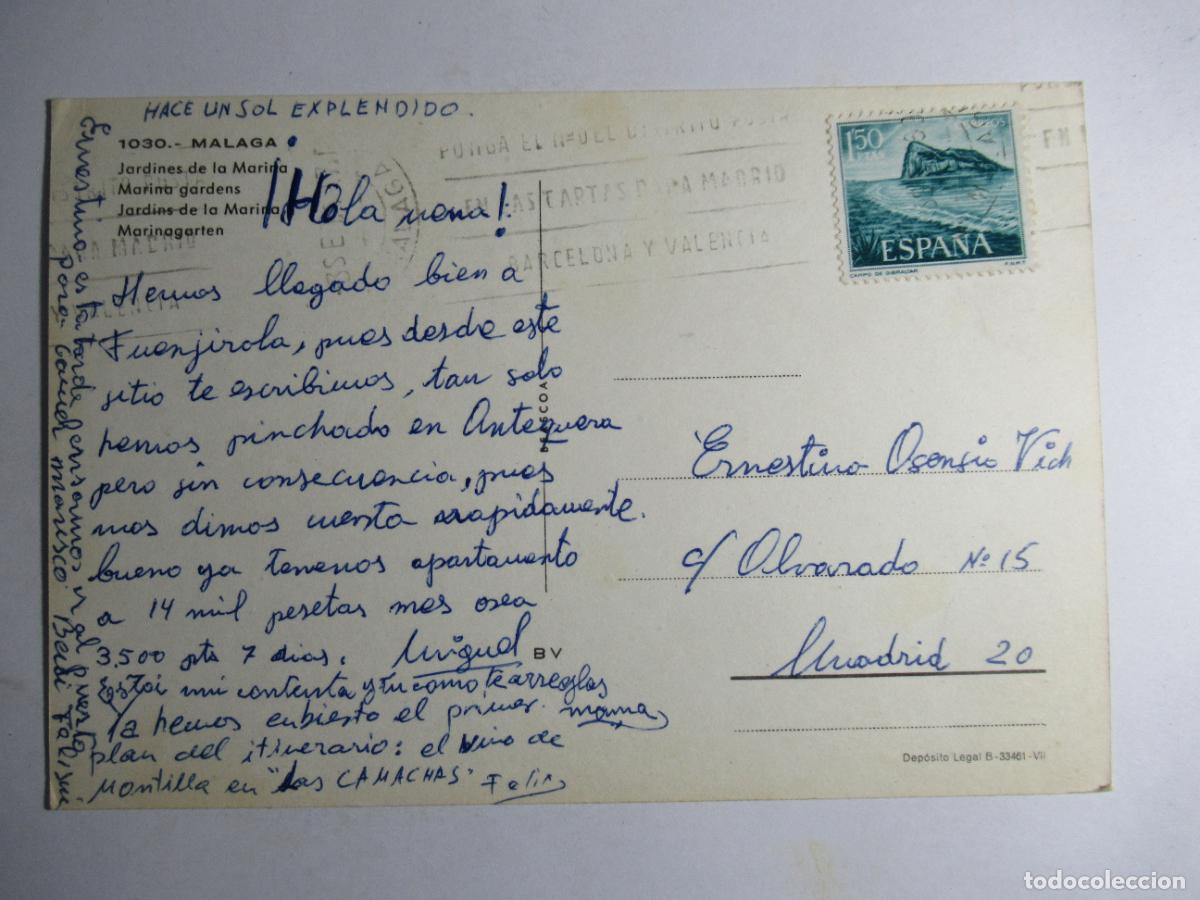 HACE UN SOL EXPLENDIDO.
1030.- MALAGA
Jardines de la Marina
Marina gardens
Jardins de la Marina
Marinagarten
¡Hola nena!
Hemos llegado bien a
Fuenjirola, pues desde este
sitio te escribimos, tan solo
hemos pinchado en Antequera
pero sin consecuencia, pues
nos dimos cuenta rapidamente.
bueno ya tenemos apartamento
a 14 mil pesetas mes osea
3,500 pts 7 dias. Miguel
Estoi mui contenta y tu como te arreglas
mama
Ya hemos cubierto el primer
plan del itinerario: el vino de
Montilla en "Las CAMACHAS" Felix
Ernestino esta tarde pensamos ir al puerto
para comer marisco
PONGA EL Nº DEL DISTRITO POSTAL
EN LAS CARTAS PARA MADRID
BARCELONA Y VALENCIA
MALAGA
1,50
PTAS
CORREOS
ESPAÑA
CAMPO DE GIBRALTAR
F.N.M.T.
BV
Ernestino Asensio Vich
c/ Alvarado Nº 15
Madrid 20
Depósito Legal B-33461-VII
todocoleccion